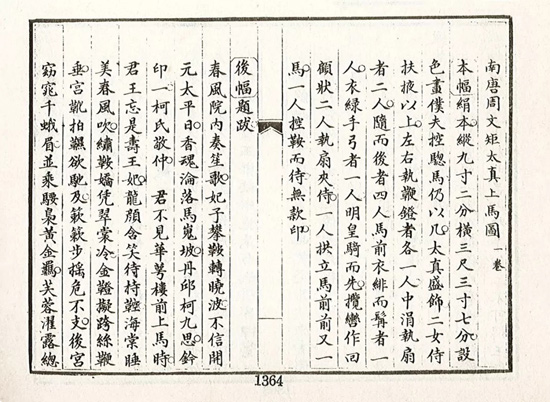 南唐周文矩太真上馬圖一卷
本幅絹本縱九寸二分橫三尺三寸七分設
色畫僕夫控驄馬仍以几太真盛飾二女侍
扶掖以上左右執鞭鐙者各一人中涓執扇
者二人隨而後者四人馬前衣緋而髯者一
人衣綠手弓者一人明皇騎而先攬轡作回
顧狀二人執扇夾侍一人拱立馬前前又一
馬一人控鞍而待無款印
後幅題跋
春風院內奏笙歌妃子攀鞍轉曉波不信開
元太平日香魂淪落馬嵬坡丹邱柯九思鈐
印一柯氏敬仲 君不見華萼樓前上馬時
君王忘是壽王妃龍顏含笑待持鞚海棠睡
美春風吹繡鞍嬌凭翠棠冷金鞚擬跨絲鞭
垂宮靴拍飄欲馳及蔌蔌步搖危不支後宮
窈窕千蛾眉並乘騕褭黃金羈芙蓉濯露總
1364